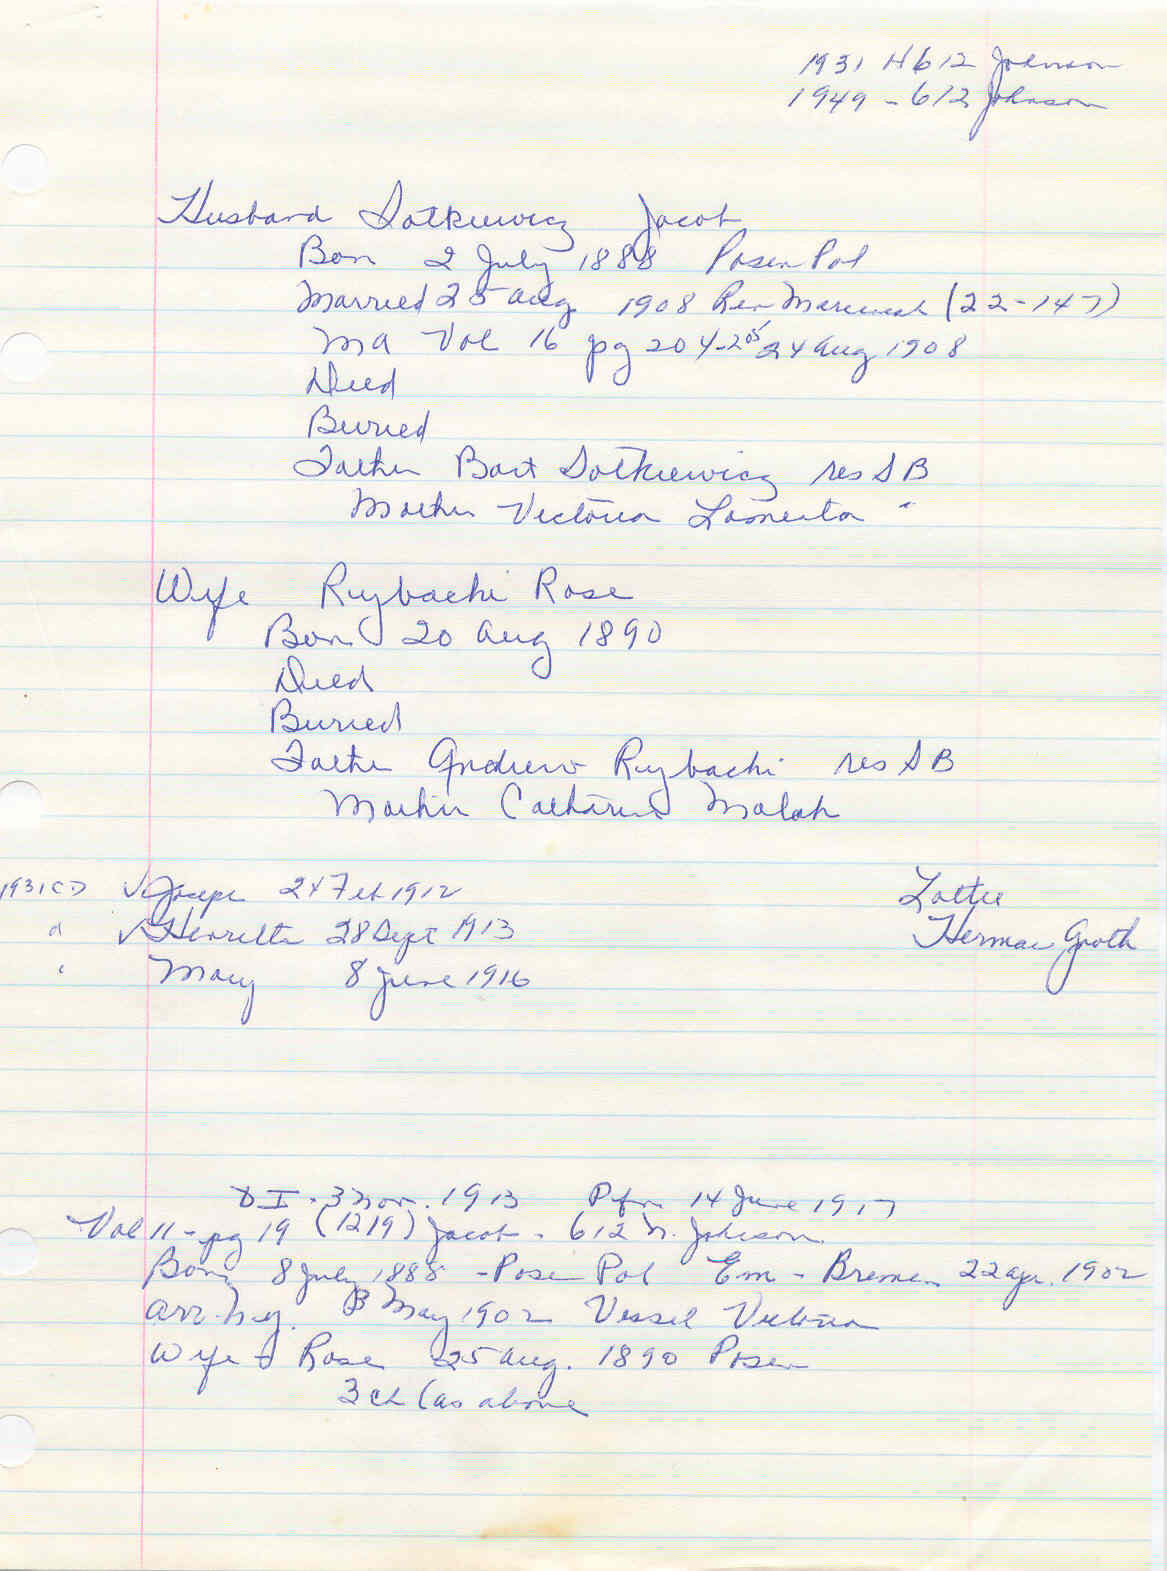 1931 H 612 Johnson
1949 - 612 Johnson
Husband Sotkiewicz Jacob
Born 2 July 1888 Posen Pol
Married 25 Aug 1908 Rev (22-147)
MA Vol 16 pg 204-205 24 Aug 1908
Died
Buried
Father Bart Sotkiewicz res SB
Mother Victoria "
Wife Ruybachi Rose
Born 20 Aug 1890
Died
Buried
Father Andrew Ruybachi res SB
Mother Catharine Malak
1931 CD ✓ Joseph 24 Feb 1912 Lottie
" ✓ Henrietta 28 Sept 1913 Herman Groth
" Mary 8 June 1916
DI - 3 Nov. 1913 14 June 1917
Vol 11 - pg 19 (1219) Jacob - 612 N. Johnson
Born 8 July 1888 - Posen Pol Em - Bremen 22 Apr. 1902
Arr. N.Y. 8 May 1902 Vessel Victoria
Wife Rose 25 Aug. 1890 Posen
3 ch (as above